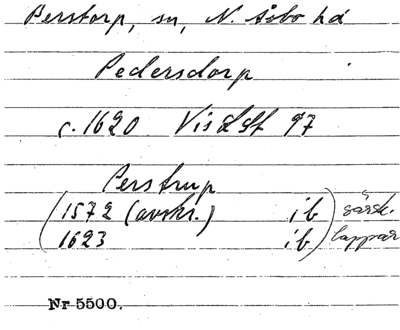 Perstorp, sn, N. Åsbo hd
Pedersdorp
c. 1620 VisLSt 97
Perstrup
(1572 (avskr.) ib) särsk.
(1623 ib) lappar
Nr 5500.